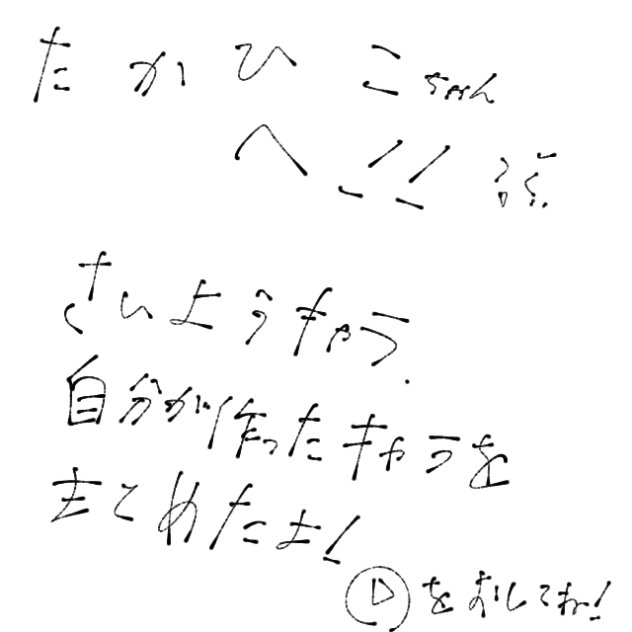 たかひこちゃん
へ!!
さいようキャラ.
自分が作ったキャラを
まとめたよ!
▷をおしてね!